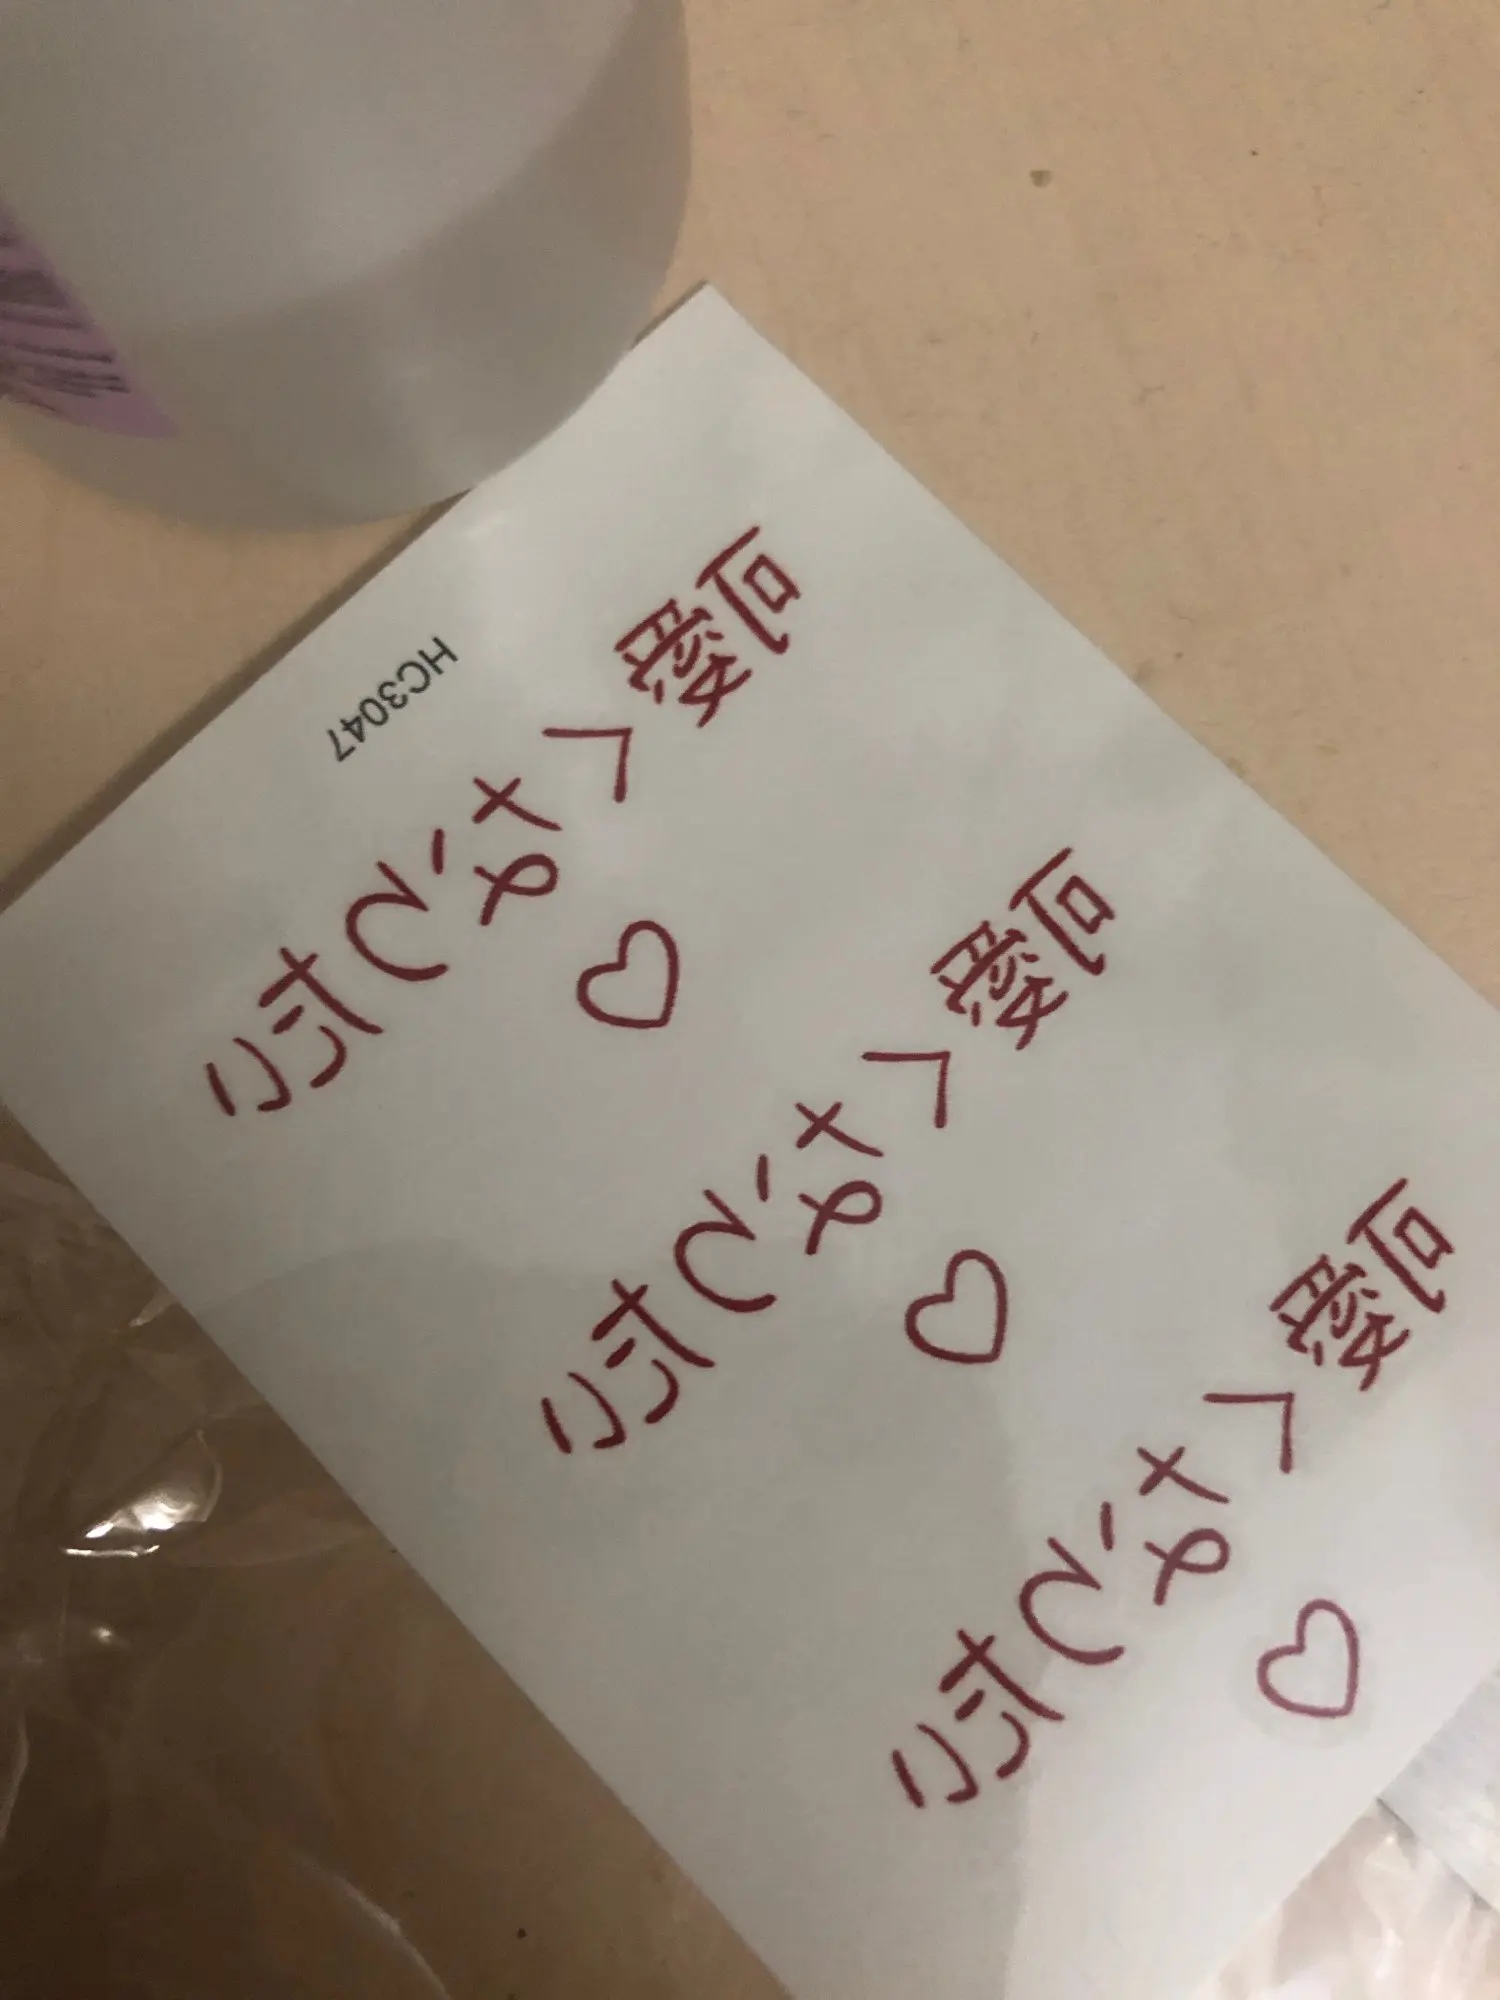 HC3047
可愛くなりたい
♡
可愛くなりたい
♡
可愛くなりたい
♡